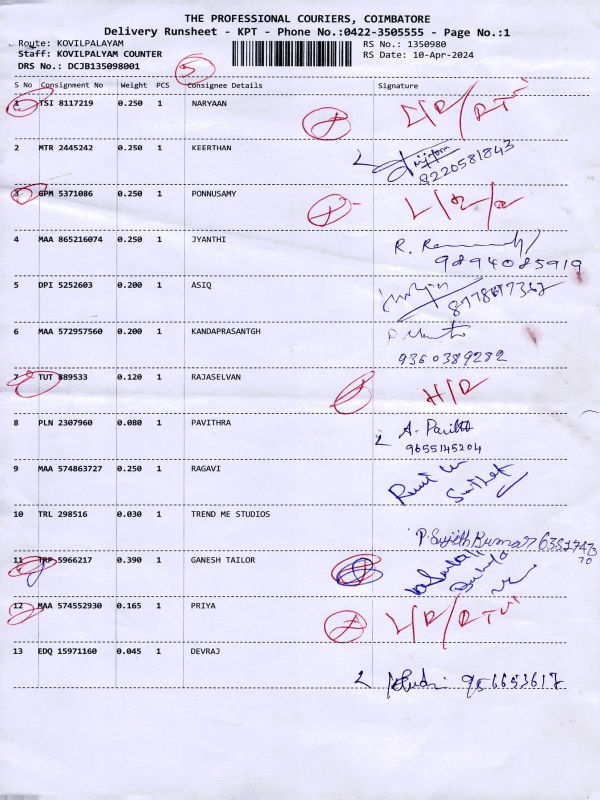 THE PROFESSIONAL COURIERS, COIMBATORE
Delivery Runsheet - KPT - Phone No.:0422-3505555 - Page No.:1
Route: KOVILPALAYAM RS No.: 1350980
Staff: KOVILPALYAM COUNTER RS Date: 10-Apr-2024
DRS No.: DCJB135098001
5
S No Consignment No Weight PCS Consignee Details Signature
1 TSI 8117219 0.250 1 NARYAAN
2 MTR 2445242 0.250 1 KEERTHAN
8220581843
3 GPM 5371086 0.250 1 PONNUSAMY
4 MAA 865216074 0.250 1 JYANTHI
9894085919
5 DPI 5252603 0.200 1 ASIQ
6 MAA 572957560 0.200 1 KANDAPRASANTGH
9360389282
7 TUT 889533 0.120 1 RAJASELVAN
8 PLN 2307960 0.080 1 PAVITHRA
9655145204
9 MAA 574863727 0.250 1 RAGAVI
10 TRL 298516 0.030 1 TREND ME STUDIOS
P. Sujith Kumar
11 TRP 5966217 0.390 1 GANESH TAILOR
12 MAA 574552930 0.165 1 PRIYA
13 EDQ 15971160 0.045 1 DEVRAJ